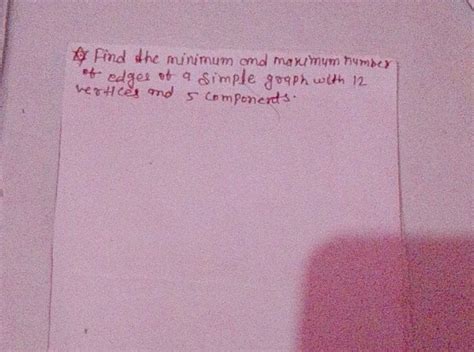 Find the minimum and maximum number
of edges of a simple graph with 12
vertices and 5 components.